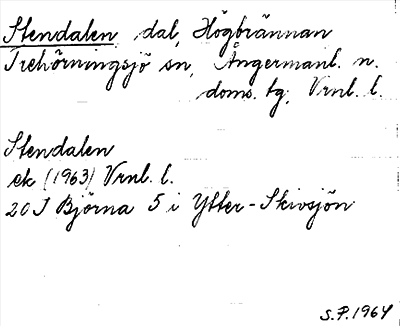 Stendalen, dal, Högbrännan
Trehörningsjö sn, Ångermanl. n.
doms. tg, Vrnl. l.
Stendalen
ek (1963) Vrnl. l.
20 I Björna 5 i Ytter-Skivsjön
S.P. 1964